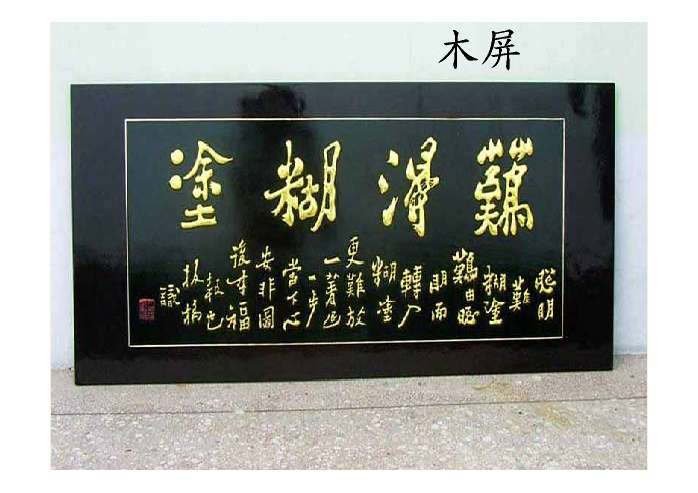 木屏
難得糊塗
聰明
難
糊塗
難由聰
明而
轉入
糊塗
更難放
一著退
一步
當下心
安非圖
後来福
報也
板橋
識